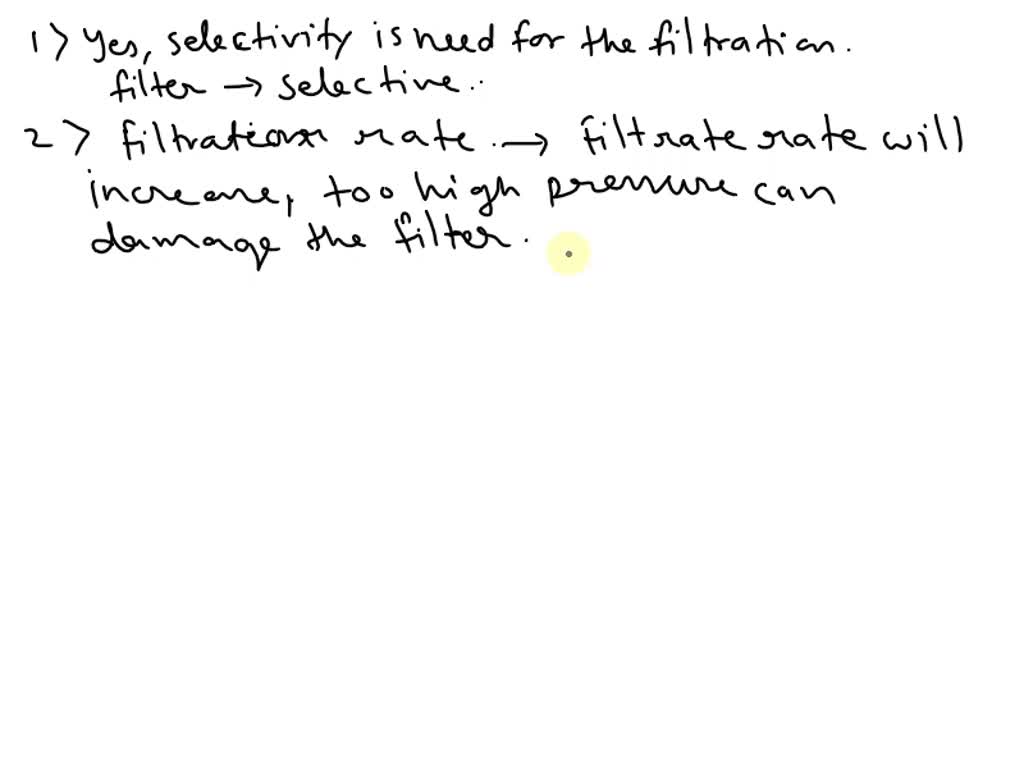 1> Yes, selectivity is need for the filtration.
filter → selective..
2> filtration rate. → filtrate rate will
increase, too high pressure can
damage the filter.